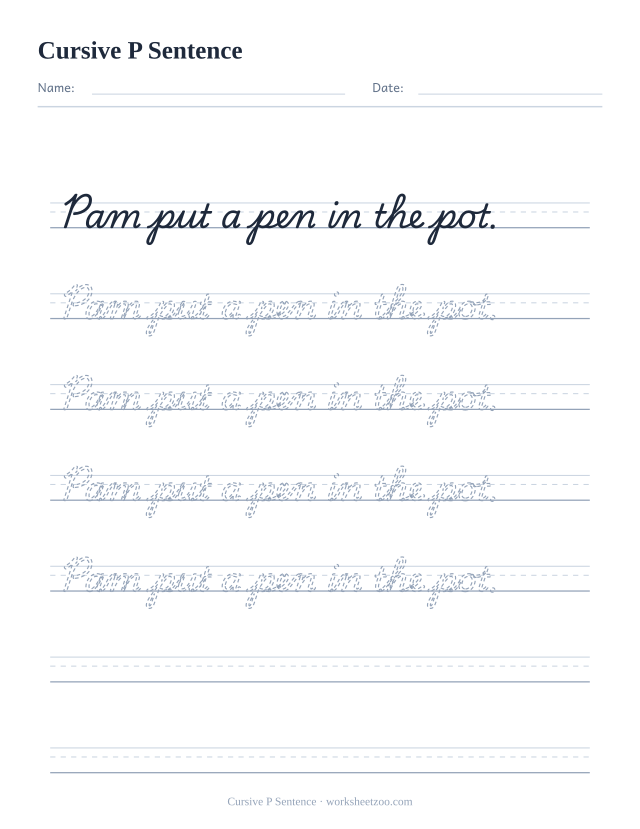 Cursive P Sentence
Name: Date:
Pam put a pen in the pot.
Pam put a pen in the pot.
Pam put a pen in the pot.
Pam put a pen in the pot.
Pam put a pen in the pot.
Cursive P Sentence · worksheetzoo.com